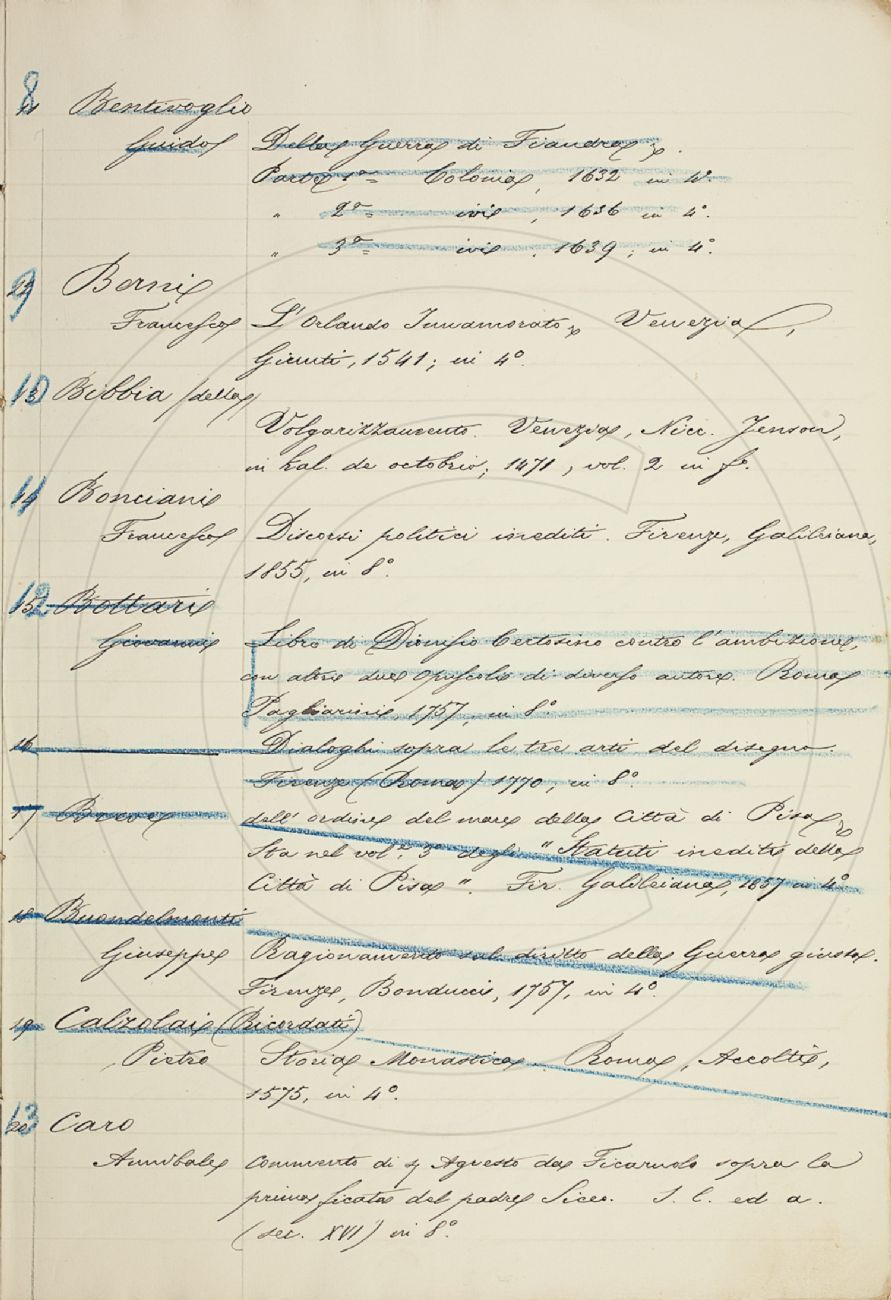 8 Bentivoglio
Guido Della Guerra di Fiandra.
Parte 1a Colonia, 1632 in 4°.
" 2a ivi, 1636 in 4°.
" 3a ivi, 1639; in 4°.
9 Berni
Francesco L'Orlando Innamorato, Venezia,
Giunti, 1541; in 4°.
10 Bibbia (della)
Volgarizzamento. Venezia, Nicc. Jenson,
in kal. de octobrio; 1471, vol. 2 in f°.
11 Bonciani
Francesco Discorsi politici inediti. Firenze, Galileiana,
1855, in 8°.
12 15 Bottari
Giovanni Libro di Dionisio Certosino contro l'ambizione,
con altri due opuscoli di diverso autore. Roma
Pagliarini, 1757, in 8°.
16 Dialoghi sopra le tre arti del disegno.
Firenze (Roma) 1770, in 8°.
17 Breve dell'ordine del mare della Città di Pisa
Sta nel vol. 3° degli "Statuti inediti della
Città di Pisa". Fir. Galileiana, 1857 in 4°.
18 Buondelmonti
Giuseppe Ragionamento sul diritto della Guerra giusta.
Firenze, Bonducci, 1757, in 4°.
19 Calzolai (Ricordati)
Pietro Storia Monastica. Roma, Accolti,
1575, in 4°.
13 20 Caro
Annibale Commento di Ser Agresto da Ficaruolo sopra la
prima ficata del padre Siceo. S. l. ed a.
(sec. XVI) in 8°.